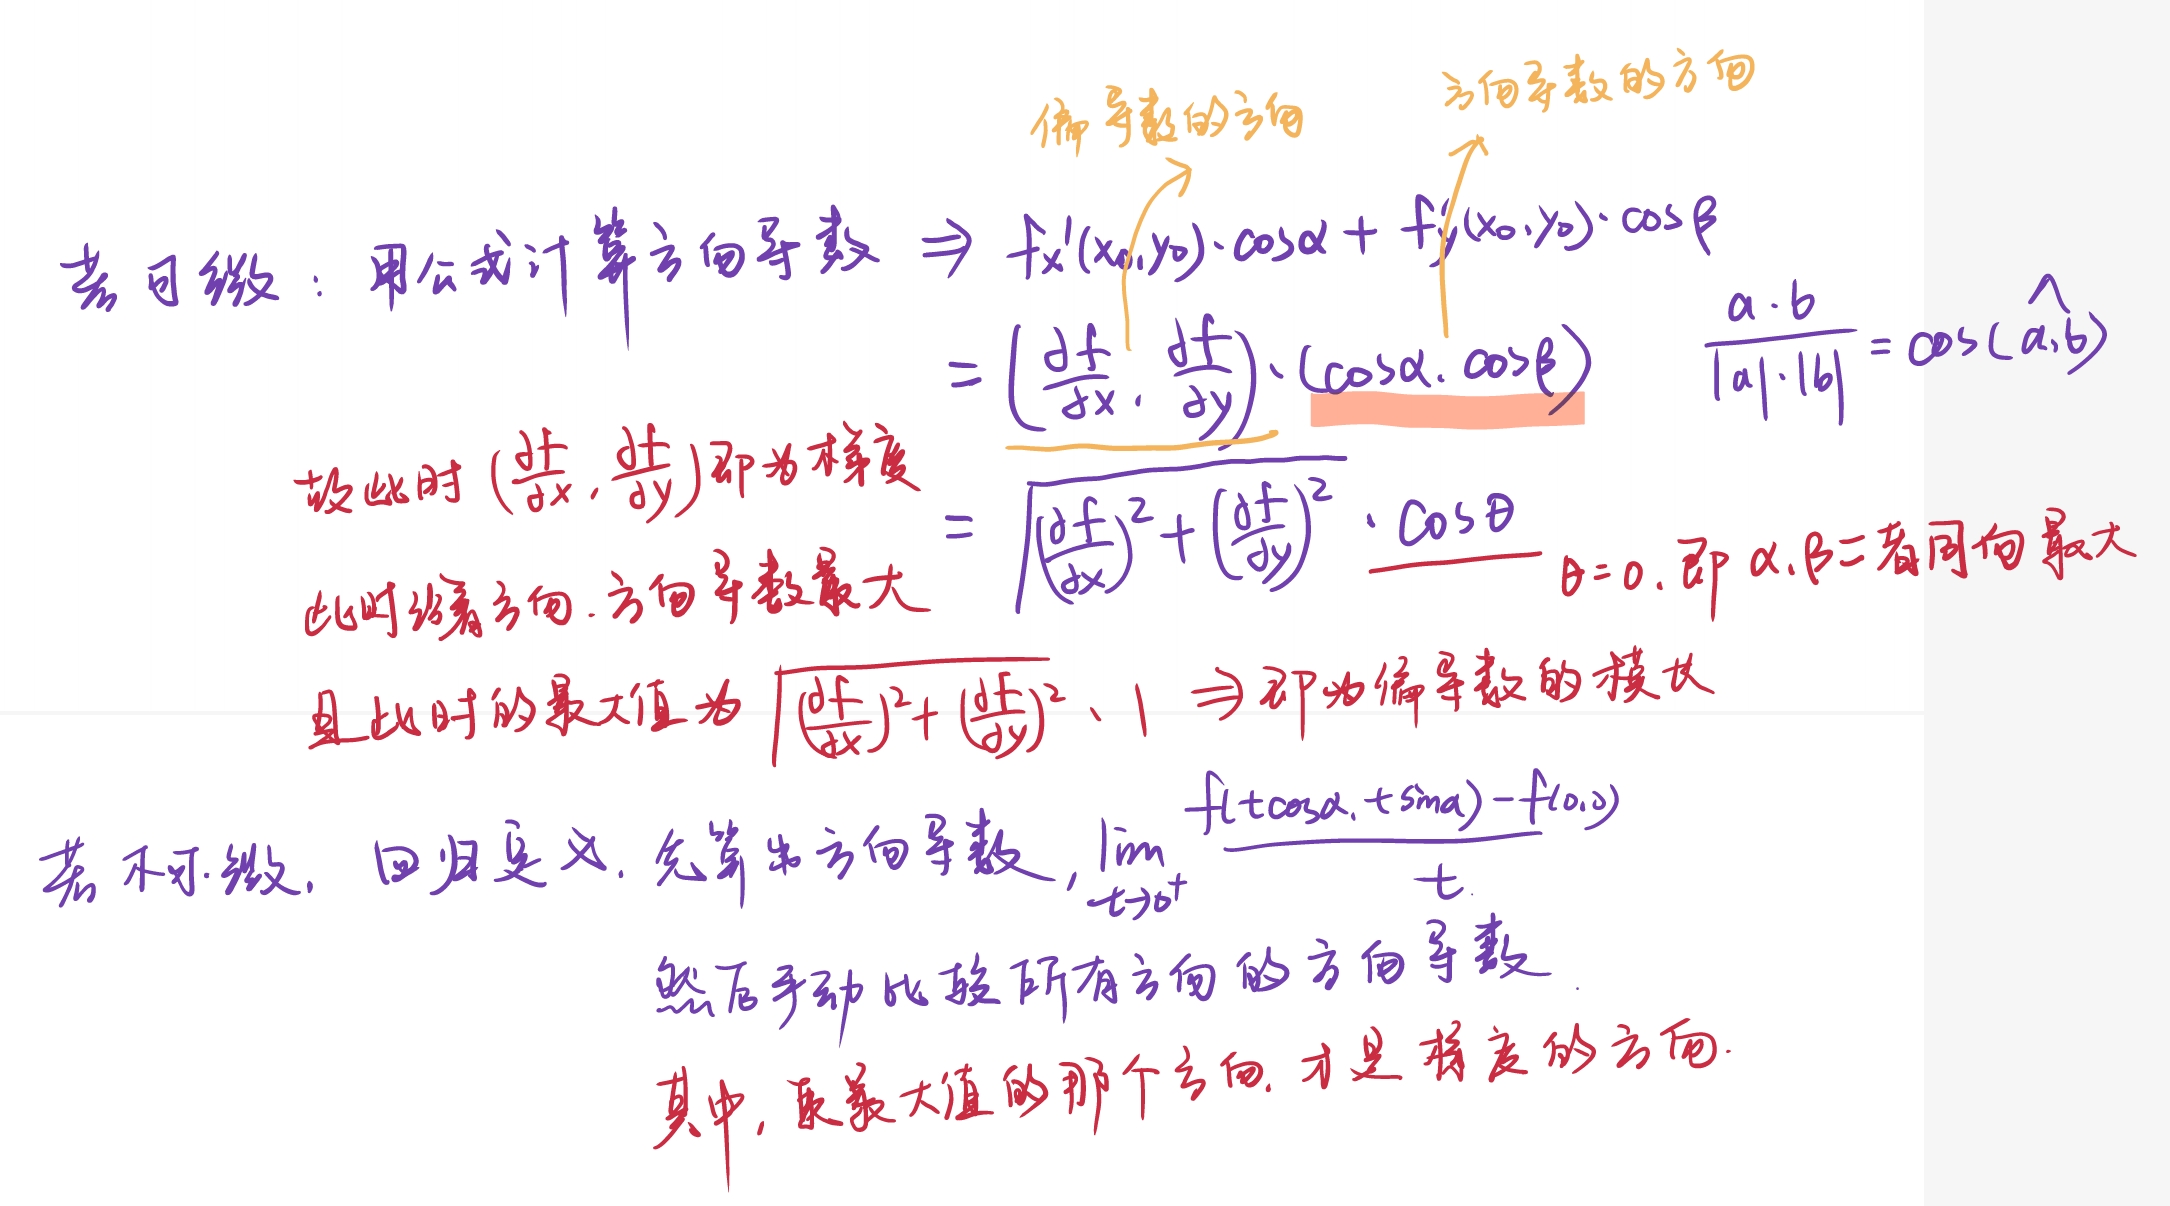 偏导数的方向
方向导数的方向
若可微：用公式计算方向导数 ⇒ fx'(x0,y0)·cosα + fy'(x0,y0)·cosβ
= (∂f/∂x, ∂f/∂y)·(cosα, cosβ)
a·b/|a|·|b| = cos(a,b)
故此时 (∂f/∂x, ∂f/∂y) 即为梯度
= √(∂f/∂x)²+(∂f/∂y)² · cosθ
θ=0, 即 α,β二者同向最大
此时沿着方向, 方向导数最大
且此时的最大值为 √(∂f/∂x)²+(∂f/∂y)² · 1 ⇒ 即为偏导数的模长
若不可微, 回归定义, 先算出方向导数, lim t→0⁺ f(tcosα, tsinα)-f(0,0)/t
然后手动比较所有方向的方向导数.
其中, 取最大值的那个方向, 才是梯度的方向.